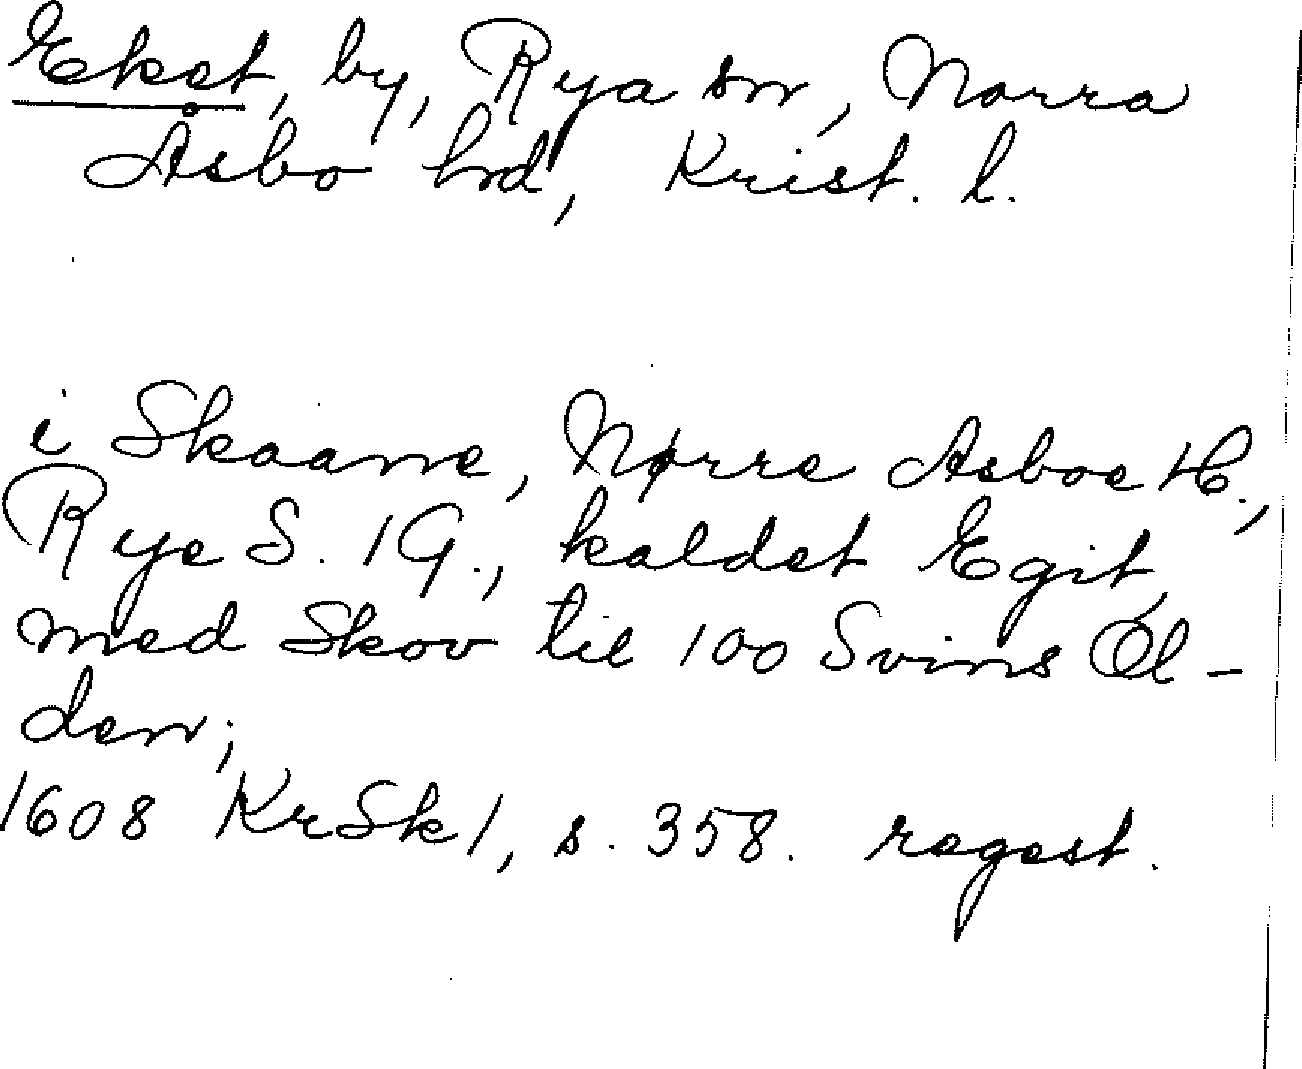 Eket, by, Rya sn, Norra
Åsbo hd, Krist. l.
i Skaane, Nørre Asboe H.,
Rye S. 1 G., kaldet Egit,
med Skov til 100 Svins Ol-
den;
1608 KrSk 1, s. 358. regest.